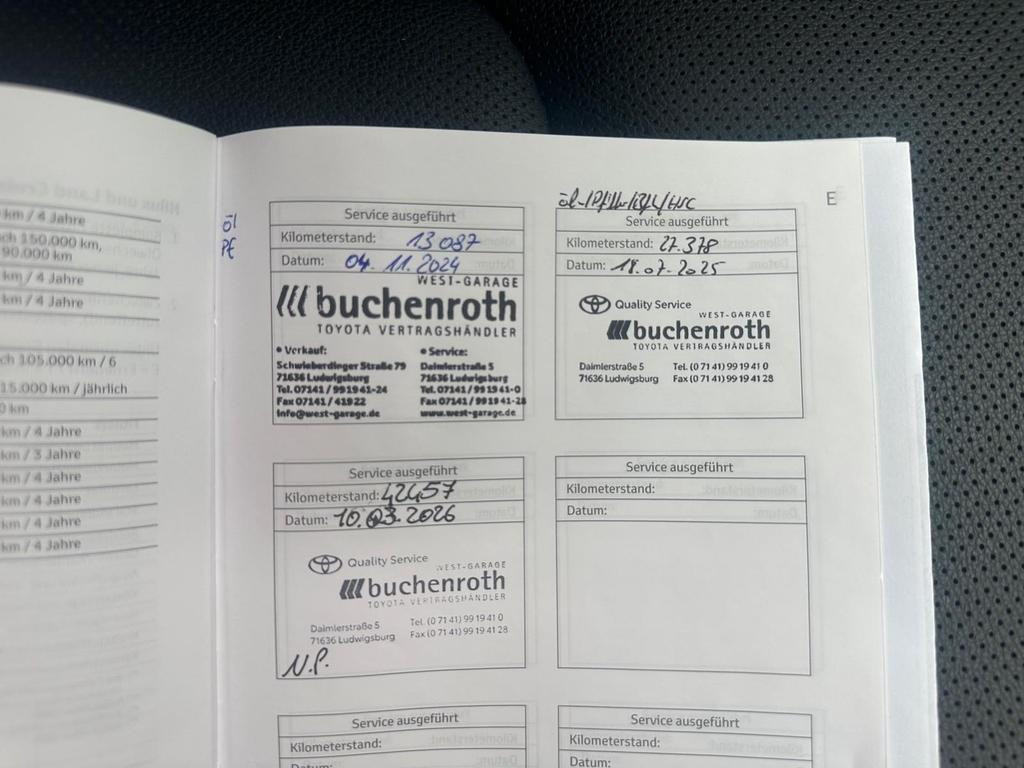 km / 4 Jahre
ch 150.000 km,
90.000 km
km / 4 Jahre
km / 4 Jahre
ch 105.000 km / 6
15.000 km / jährlich
0 km
km / 4 Jahre
km / 3 Jahre
km / 4 Jahre
km / 4 Jahre
km / 4 Jahre
km / 4 Jahre
E
öl
PE
Service ausgeführt
Kilometerstand: 13 087
Datum: 04. 11. 2024
WEST-GARAGE
buchenroth
TOYOTA VERTRAGSHÄNDLER
• Verkauf:
Schwieberdinger Straße 79
71636 Ludwigsburg
Tel. 07141 / 99 19 41-24
Fax 07141 / 41922
info@west-garage.de
• Service:
Daimlerstraße 5
71636 Ludwigsburg
Tel. 07141 / 99 19 41-0
Fax 07141 / 99 19 41-28
www.west-garage.de
Service ausgeführt
Kilometerstand: 27.378
Datum: 18.07.2025
Quality Service
WEST-GARAGE
buchenroth
TOYOTA VERTRAGSHÄNDLER
Daimlerstraße 5
71636 Ludwigsburg
Tel. (0 71 41) 99 19 41 0
Fax (0 71 41) 99 19 41 28
Service ausgeführt
Kilometerstand: 42457
Datum: 10.03.2026
Quality Service
WEST-GARAGE
buchenroth
TOYOTA VERTRAGSHÄNDLER
Daimlerstraße 5
71636 Ludwigsburg
Tel. (0 71 41) 99 19 41 0
Fax (0 71 41) 99 19 41 28
N.P.
Service ausgeführt
Kilometerstand:
Datum:
Service ausgeführt
Kilometerstand:
Datum:
Service ausgeführt
Kilometerstand:
Datum: